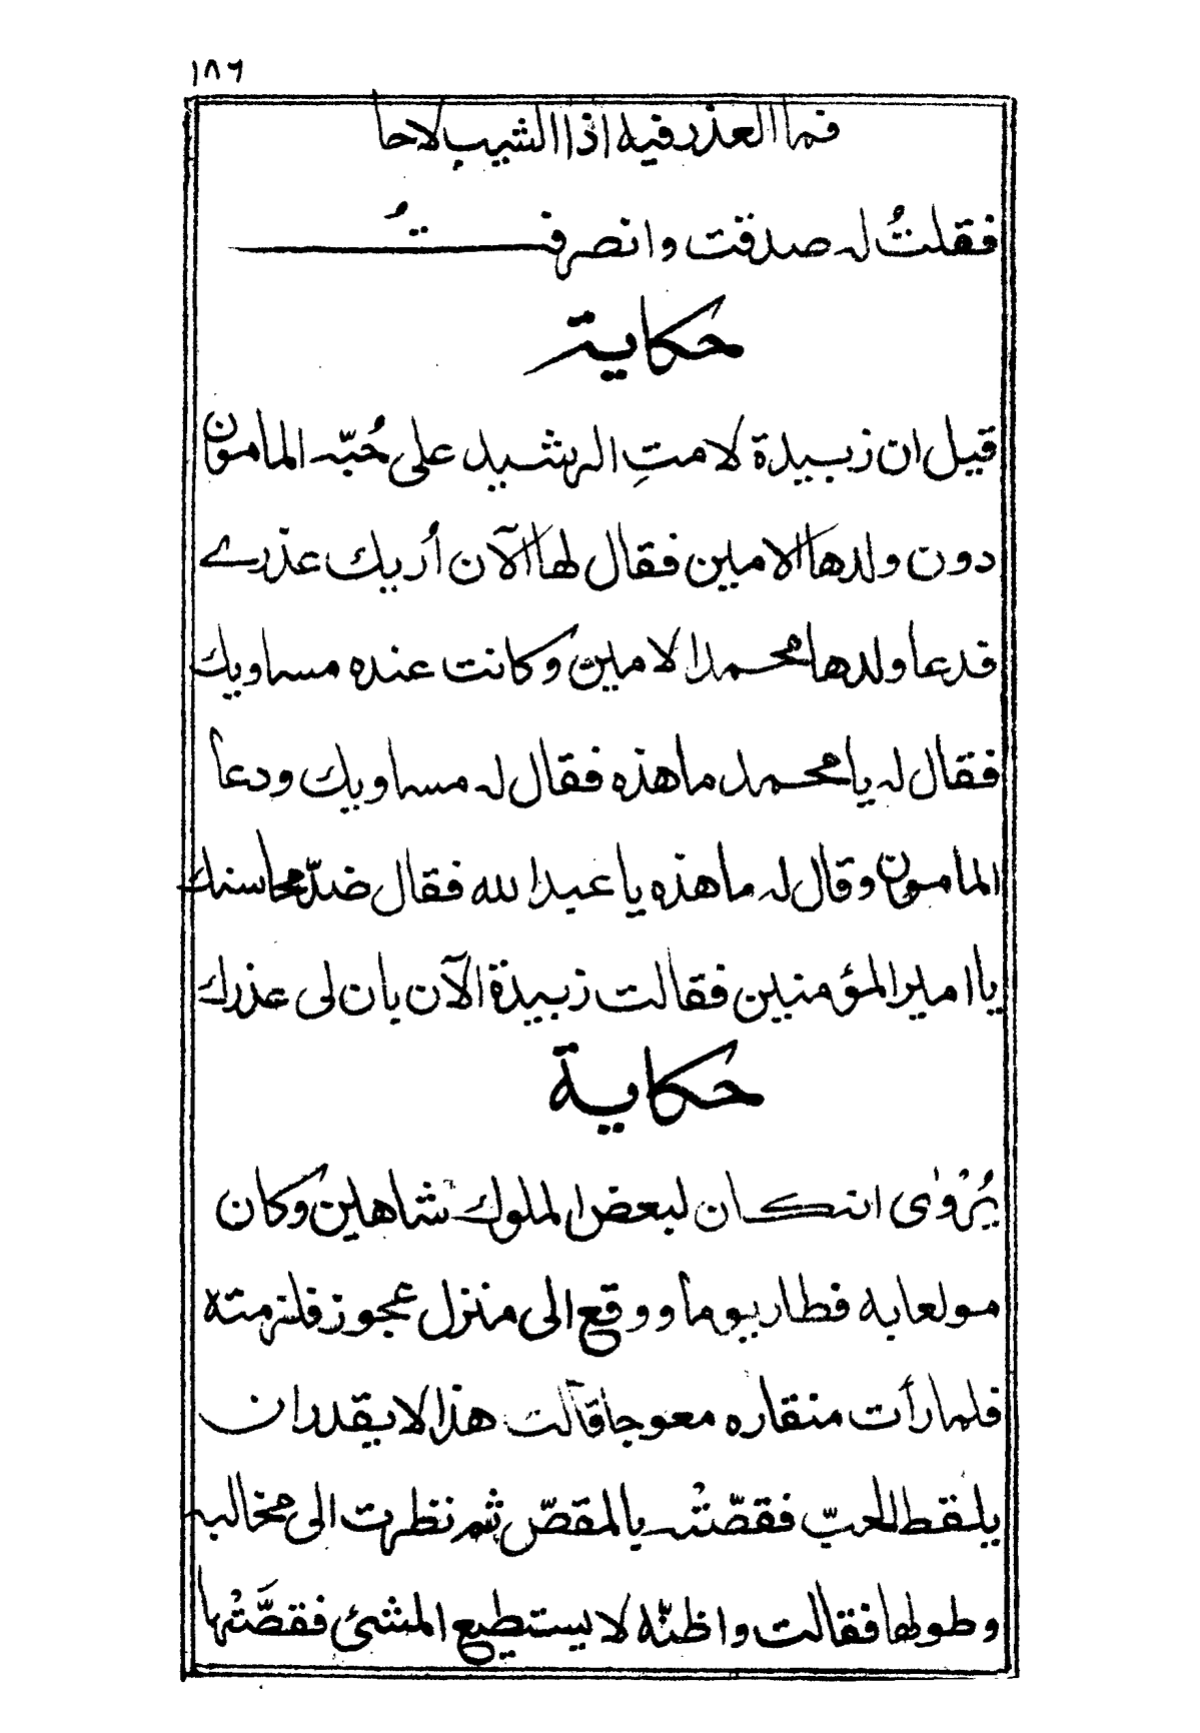 ١٨٦
فما العذر فيه اذا الشيب لاحا
فقلتُ له صدقت وانصرفتُ
حكاية
قيل ان زبيدة لامتِ الرشيد على حُبّه المامون
دون ولدها الامين فقال لها الآن أريك عذرے
فدعا ولدها محمدا الامين وكانت عنده مساويك
فقال له يا محمد ما هذه فقال له مساويك ودعا
المامون وقال له ما هذه يا عبد الله فقال ضدّ محاسنك
يا امير المؤمنين فقالت زبيدة الآن بان لى عذرك
حكاية
يُرْوٰى انه كان لبعض الملوك شاهين وكان
مولعا به فطار يوماً ووقع الى منزل عجوز فلزمته
فلما رأت منقاره معوجا قالت هذا لا يقدر ان
يلقط الحبّ فقصّتْه بالمقصّ ثم نظرت الى مخالبه
وطولها فقالت واظنّه لا يستطيع المشئ فقصَّتْها